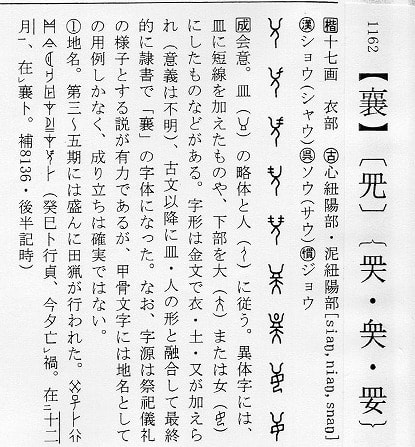 1162
【襄】〔𠒆〕｛𡗞・𠂹・𡝤｝
楷十七画　衣部　古心紐陽部・泥紐陽部[siaŋ, niaŋ, snaŋ]
漢ショウ(シャウ)呉ソウ(サウ)慣ジョウ
成会意。皿（）の略体と人（）に従う。異体字には、
皿に短線を加えたものや、下部を大（）または女（）
にしたものなどがある。字形は金文で衣・土・又が加えら
れ（意義は不明）、古文以降に皿・人の形と融合して最終
的に隷書で「襄」の字体になった。なお、字源は祭祀儀礼
の様子とする説が有力であるが、甲骨文字には地名として
の用例しかなく、成り立ちは確実ではない。
①地名。第三～五期には盛んに田猟が行われた。
（癸巳卜行貞、今夕亡レ禍。在二十二
月一、在レ襄卜。補8136・後半記時）